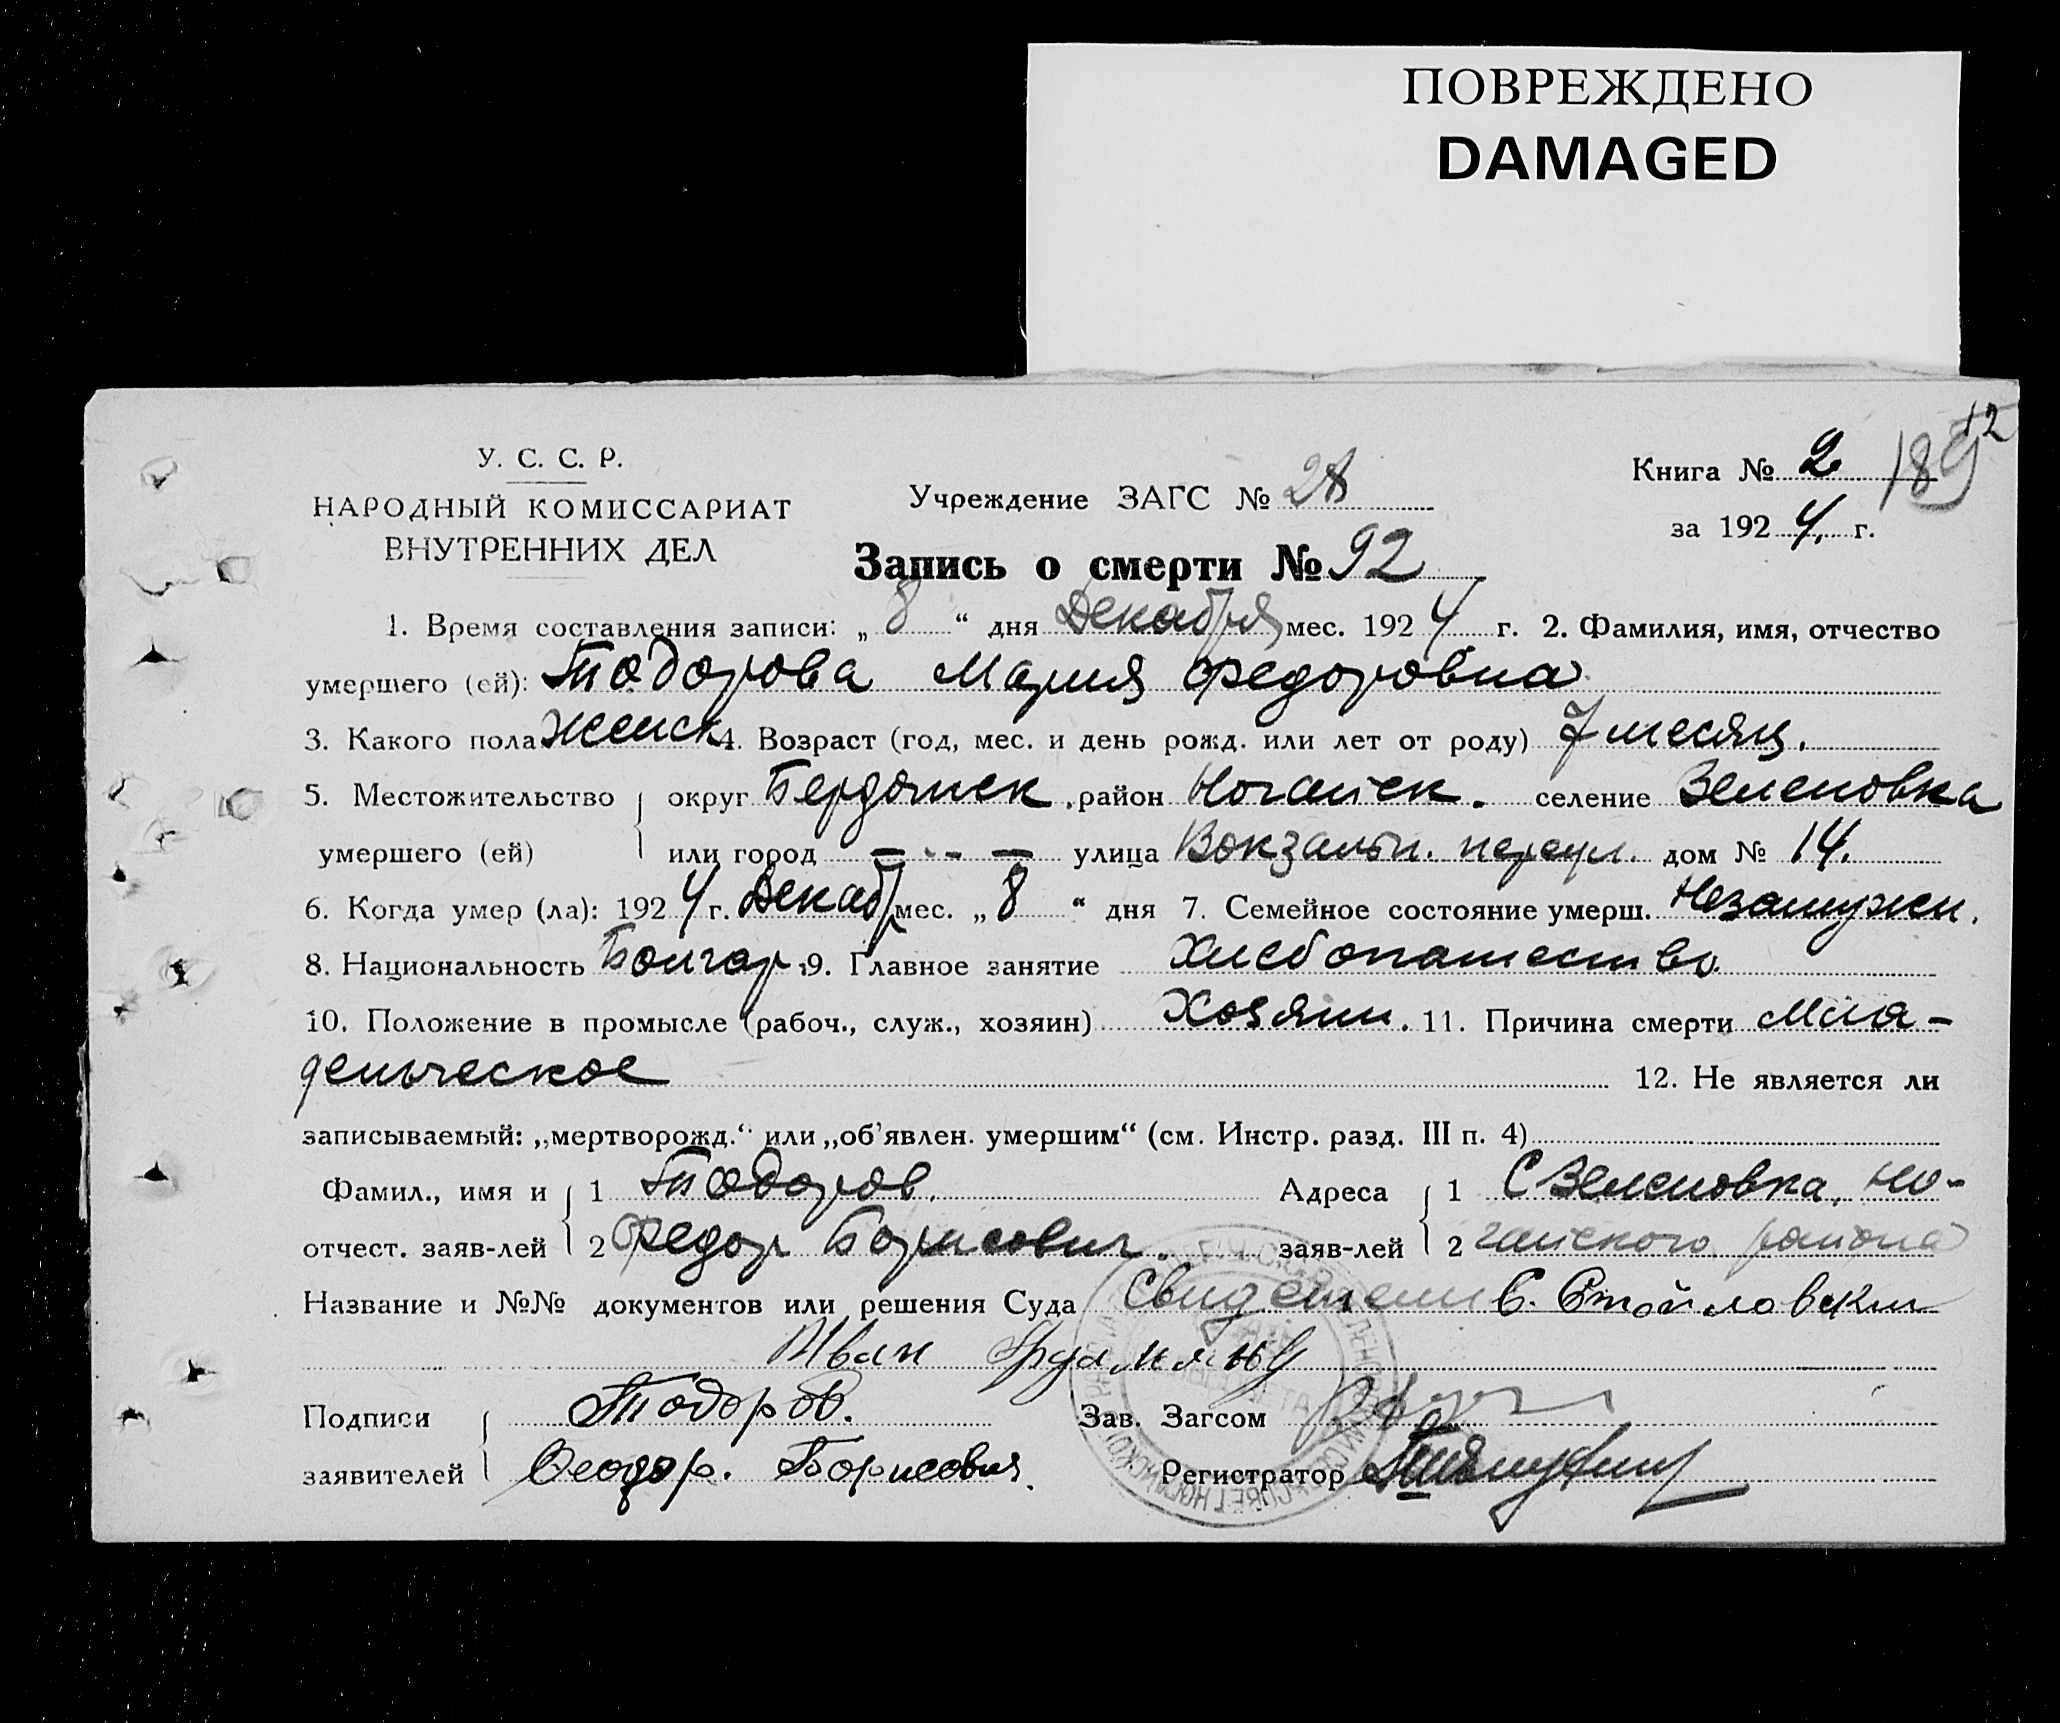 ПОВРЕЖДЕНО
DAMAGED
12
У. С. С. Р.
НАРОДНЫЙ КОМИССАРИАТ
ВНУТРЕННИХ ДЕЛ
Учреждение ЗАГС №
Книга № 2 189
за 1924 г.
Запись о смерти № 92
1. Время составления записи: „8“ дня Декабря мес. 1924 г. 2. Фамилия, имя, отчество
умершего (ей): Тодорова Мария Федоровна
3. Какого пола женск. 4. Возраст (год, мес. и день рожд. или лет от роду) 7 месяц.
5. Местожительство округ Бердянск. район Ногайск. селение Зеленовка
умершего (ей) или город — -- — улица Вокзальн. переул. дом № 14.
6. Когда умер (ла): 1924 г. Декабр мес. „8“ дня 7. Семейное состояние умерш. Незамужн.
8. Национальность Болгар. 9. Главное занятие Хлебопашество
10. Положение в промысле (рабоч., служ., хозяин) Хозяин. 11. Причина смерти Мла-
денческое 12. Не является ли
записываемый: „мертворожд.“ или „об’явлен. умершим“ (см. Инстр. разд. III п. 4)
Фамил., имя и 1 Тодоров. Адреса 1 С Зеленовка, Но-
отчест. заяв-лей 2 Федор Борисович. заяв-лей 2 гайского района
Название и №№ документов или решения Суда Стойловский
Иван
Подписи Тодоров. Зав. Загсом
заявителей Феодор. Борисович. Регистратор